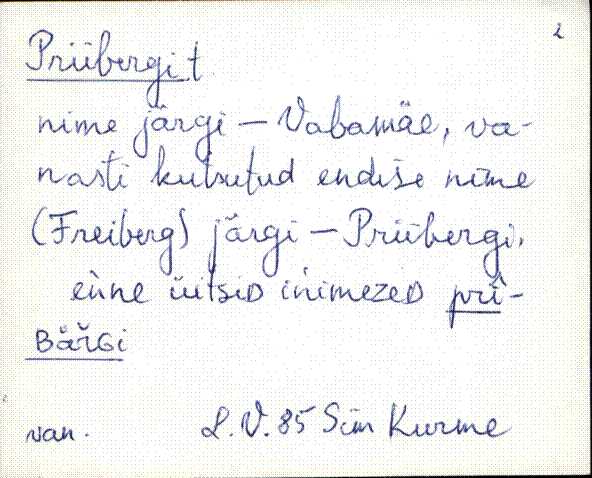 2
Priibergit
nime järgi – Vabamäe, va-
nasti kutsutud endise nime
(Freiberg) järgi – Priibergi.
enne üitsiD inimezeD prî-
Bäŕgi
van. L.V. 85 Sim Kurme